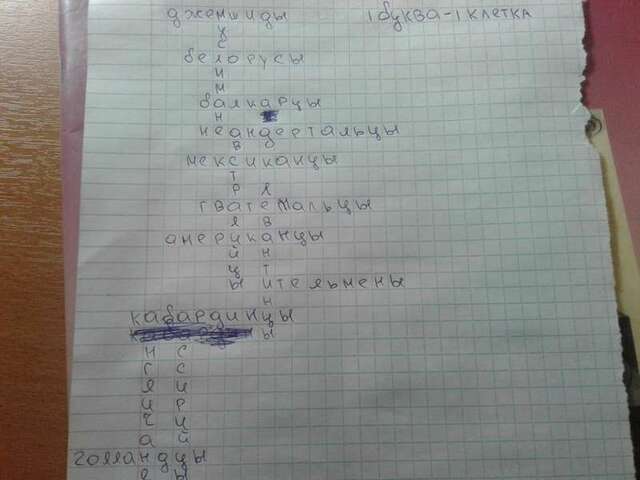 джемшиды 1 буква-1 клетка
у
с
белорусы
н
м
балкарцы
н
неандертальцы
в
мексиканцы
т
р я
гватемальцы
я в
американцы
й н
ц т
ы ительмены
н
кабардинцы
ы
н с
г с
л и
и р
ч и
а й
голландцы
е ы